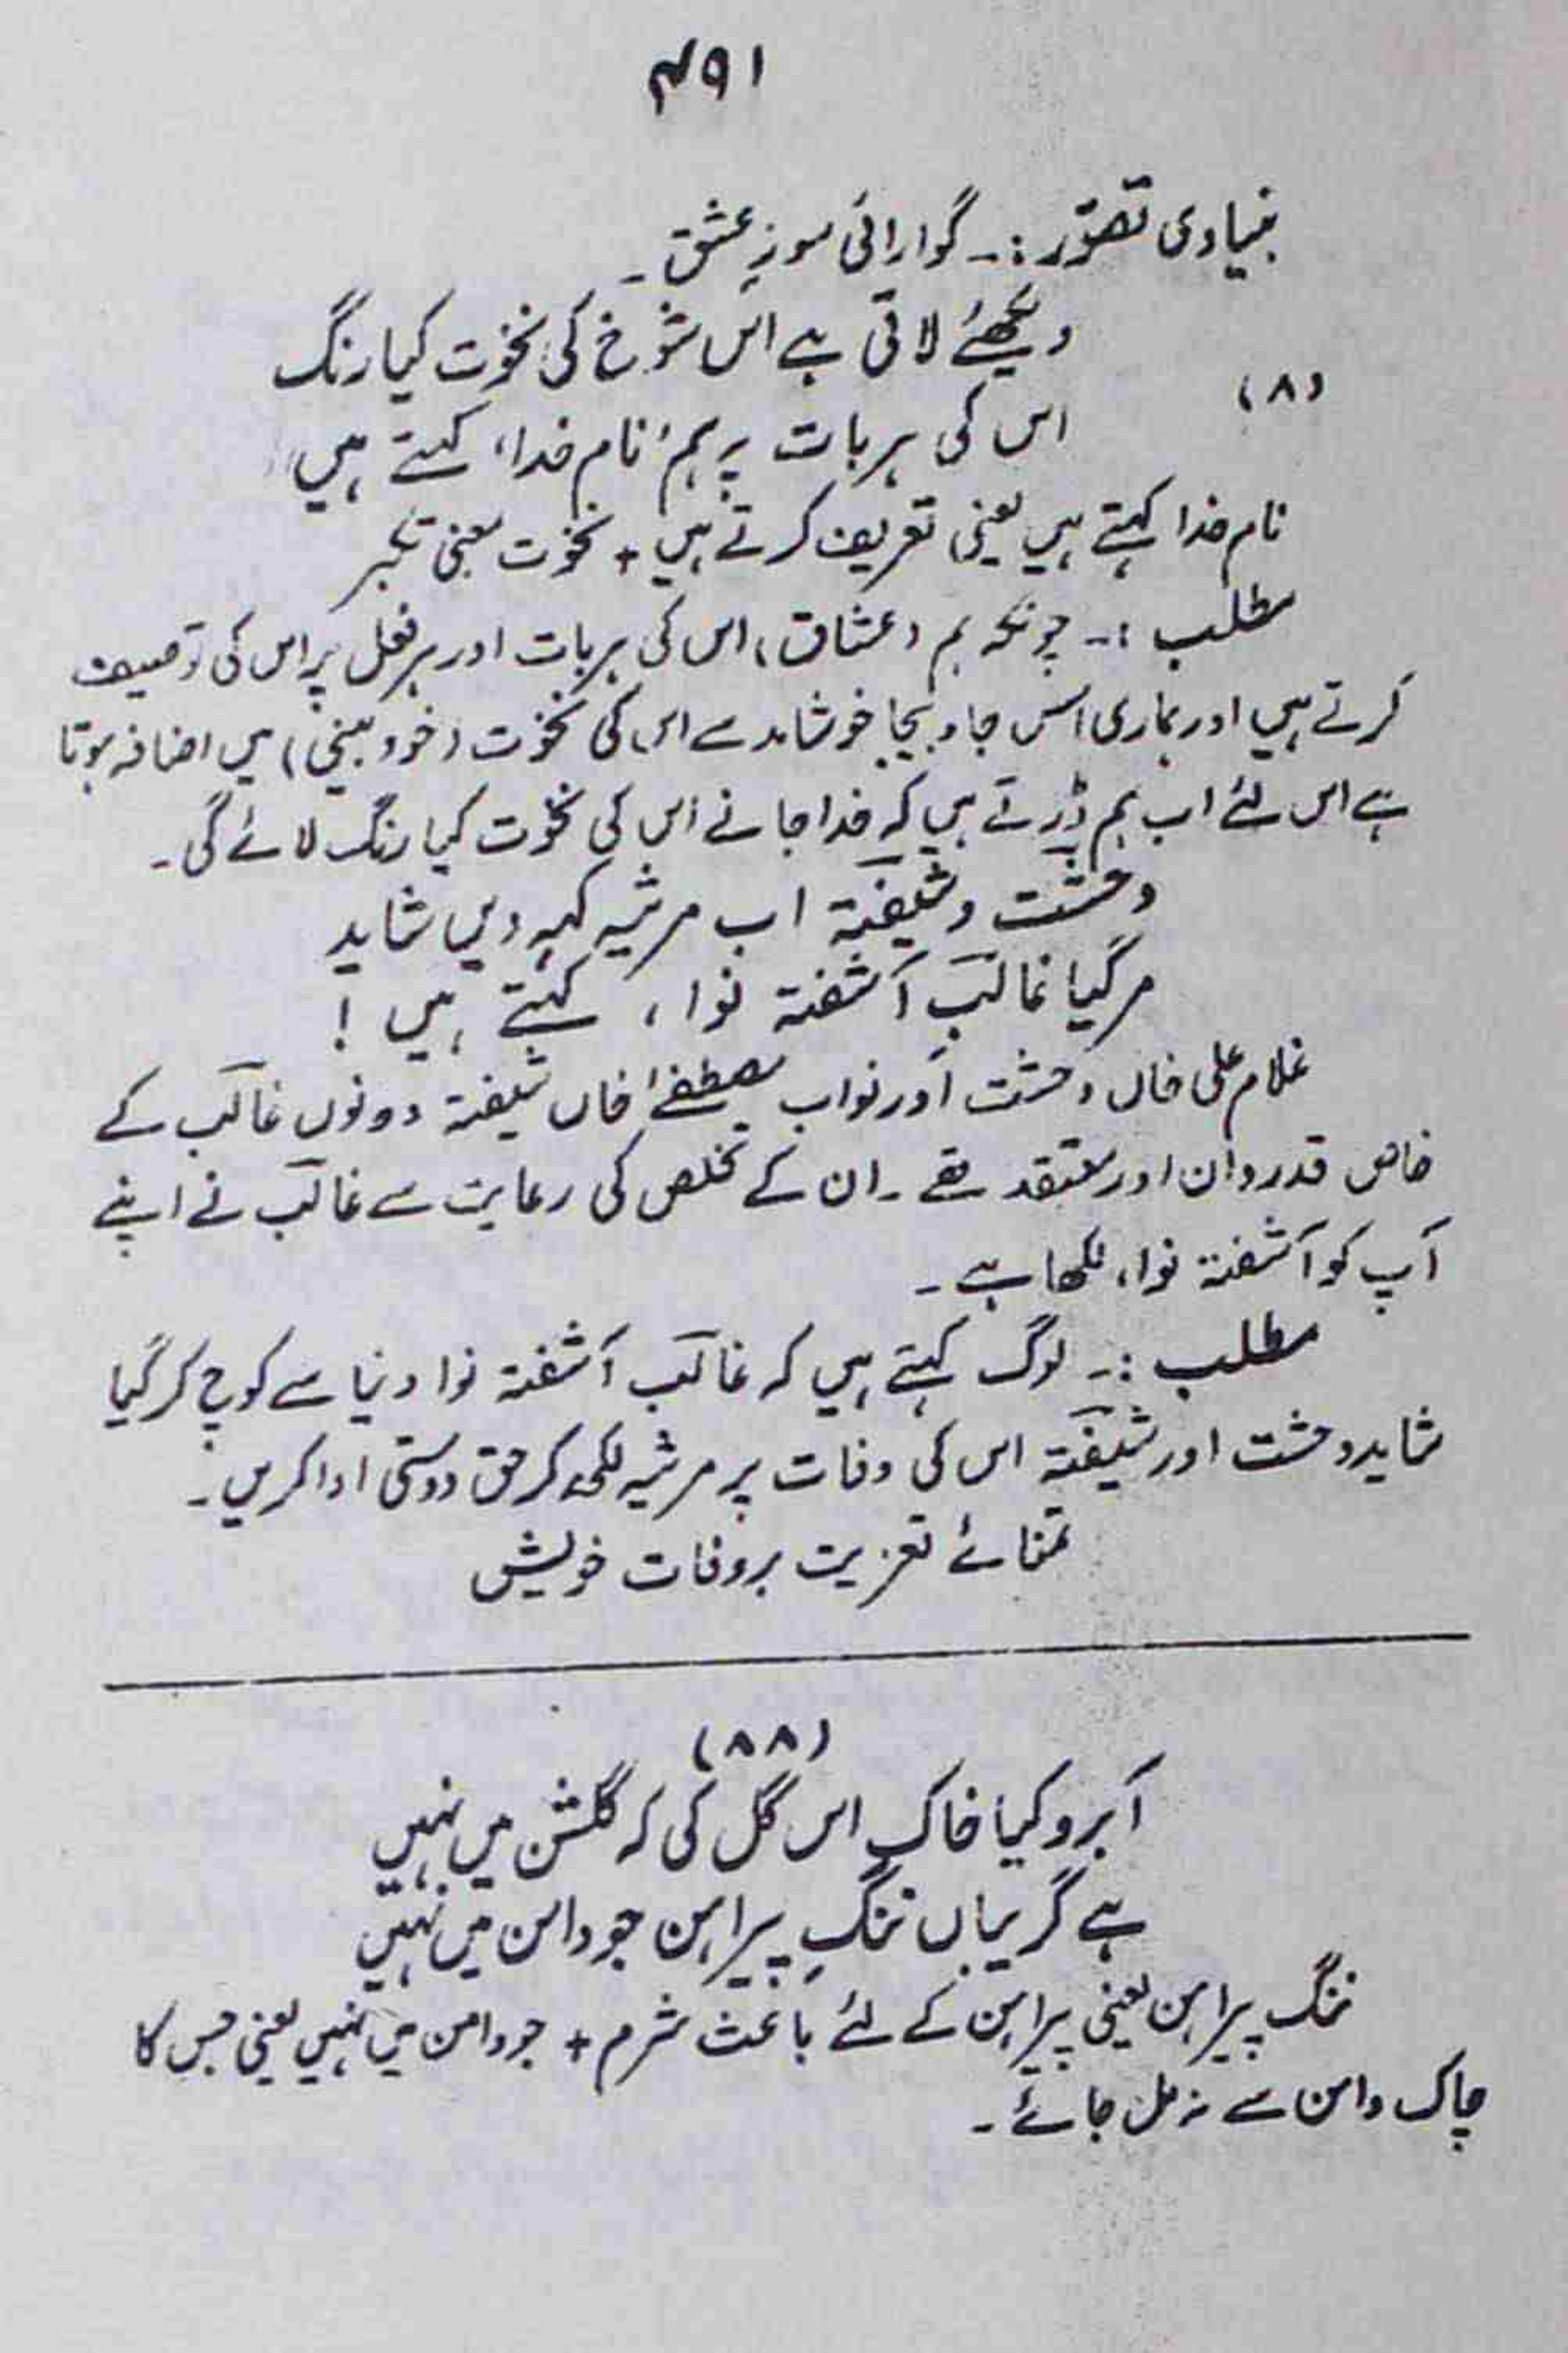 ۴۹۱
بنیادی تصوّر :۔ گوارائی سوزِ عشق ۔
دیکھئے لاتی ہے اس شوخ کی نخوت کیا رنگ
(۸)
اس کی ہر بات پہ ہم ’نام خدا‘ کہتے ہیں
نام خدا کہتے ہیں یعنی تعریف کرتے ہیں + نخوت بمعنی تکبر
مطلب :۔ چونکہ ہم (عشاق) اس کی ہر بات اور ہر فعل پر اس کی توصیف
کرتے ہیں اور ہماری اس جا و بیجا خوشامد سے اس کی نخوت (خود بینی) میں اضافہ ہوتا
ہے اس لئے اب ہم ڈرتے ہیں کہ خدا جانے اس کی نخوت کیا رنگ لائے گی ۔
وحشت و شیفتہ اب مرثیہ کہہ دیں شاید
مر گیا غالبِ آشفتہ نوا ، کہتے ہیں !
غلام علی خاں وحشت اور نواب مصطفےٰ خاں شیفتہ دونوں غالب کے
خاص قدردان اور معتقد تھے ۔ ان کے تخلص کی رعایت سے غالب نے اپنے
آپ کو آشفتہ نوا ، لکھا ہے ۔
مطلب :۔ لوگ کہتے ہیں کہ غالب آشفتہ نوا دنیا سے کوچ کر گیا
شاید وحشت اور شیفتہ اس کی وفات پر مرثیہ لکھ کر حق دوستی ادا کریں ۔
تمنائے تعزیت بر وفات خویش
(۸۸)
آبرو کیا خاک اس گل کی کہ گلشن میں نہیں
ہے گریباں ننگِ پیراہن جو دامن میں نہیں
ننگ پیراہن یعنی پیراہن کے لئے باعث شرم + جو دامن میں نہیں یعنی جس کا
چاک دامن سے نہ مل جائے ۔